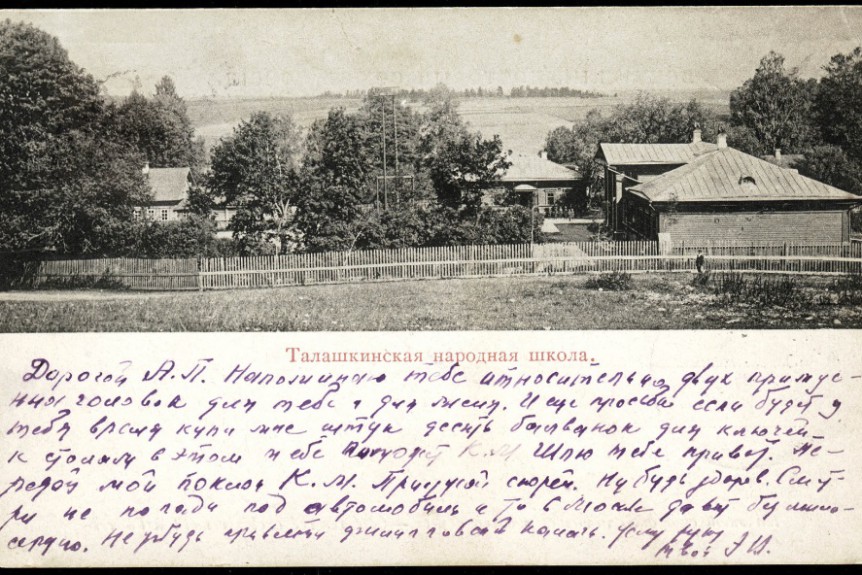 Талашкинская народная школа.
Дорогой А.П. Напоминаю тебе относительно двух примус-
ных головок для тебя и для меня. И еще просьба если будет у
тебя время купи мне штук десять болванок для ключей
к столам в этом тебе поможет К.М. Шлю тебе привет. Пе-
редай мой поклон К.М. Приезжай скорей. Ну будь здоров. Смот-
ри не попади под автомобиль а то в Москве давят без мило-
сердно. Не забудь привезти канать. Жму руку
твой